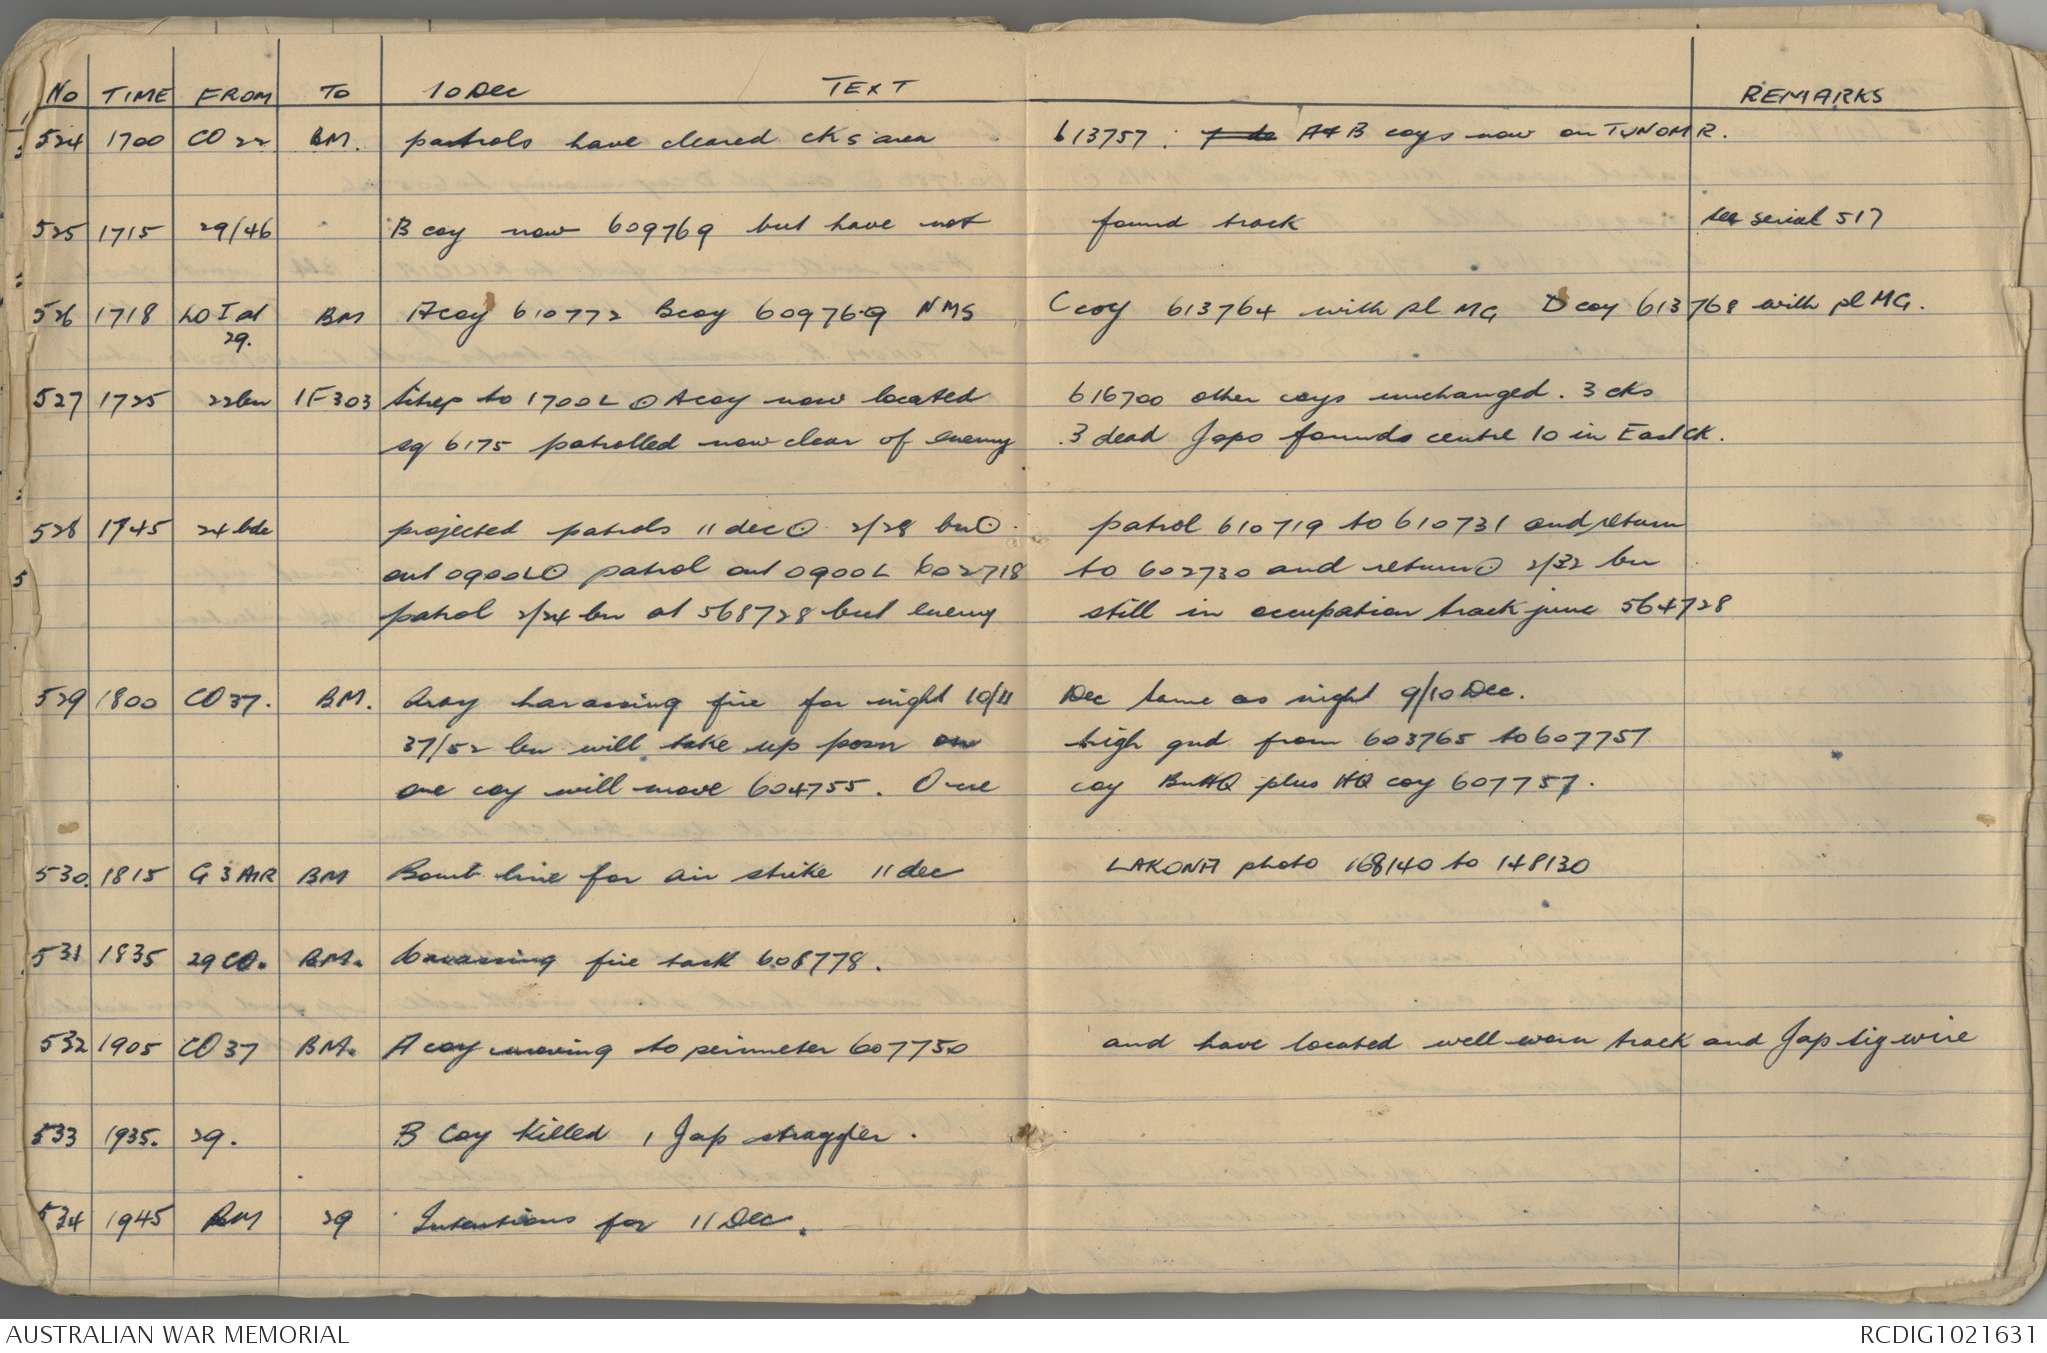 No TIME FROM TO 10 Dec TEXT REMARKS
524 1700 CO 22 BM. patrols have cleared cks area 613757 : A & B coys now on TUNOM R.
525 1715 29/46 B coy now 609769 but have not found track see serial 517
526 1718 LO I at BM A coy 610772 B coy 609769 NMS C coy 613764 with pl MG D coy 613768 with pl MG.
29.
527 1725 22 bn 1F303 Sitrep to 1700L ⊙ A coy now located 616700 other coys unchanged. 3 cks
sq 6175 patrolled now clear of enemy .3 dead Japs founds centre 10 in East Ck.
528 1745 24 bde projected patrols 11 dec ⊙ 2/28 bn ⊙ patrol 610719 to 610731 and return
out 0900L ⊙ patrol out 0900L 602718 to 602730 and return ⊙ 2/32 bn
patrol 2/24 bn at 568728 but enemy still in occupation track junc 564728
529 1800 CO 37. BM. Arty harassing fire for night 10/11 Dec same as night 9/10 Dec.
37/52 bn will take up posn on high gnd from 603765 to 607757
one coy will move 604755. One coy Bn HQ plus HQ coy 607757.
530. 1815 G 3 AIR BM Bomb line for air strike 11 dec LAKONA photo 168140 to 148130
531 1835 29 CO. BM. harassing fire task 608778.
532 1905 CO 37 BM. A coy moving to perimeter 607750 and have located well worn track and Jap sig wire
533 1935. 29. B Coy killed 1 Jap straggler.
534 1945 BM 29 Intentions for 11 Dec.
AUSTRALIAN WAR MEMORIAL RCDIG1021631